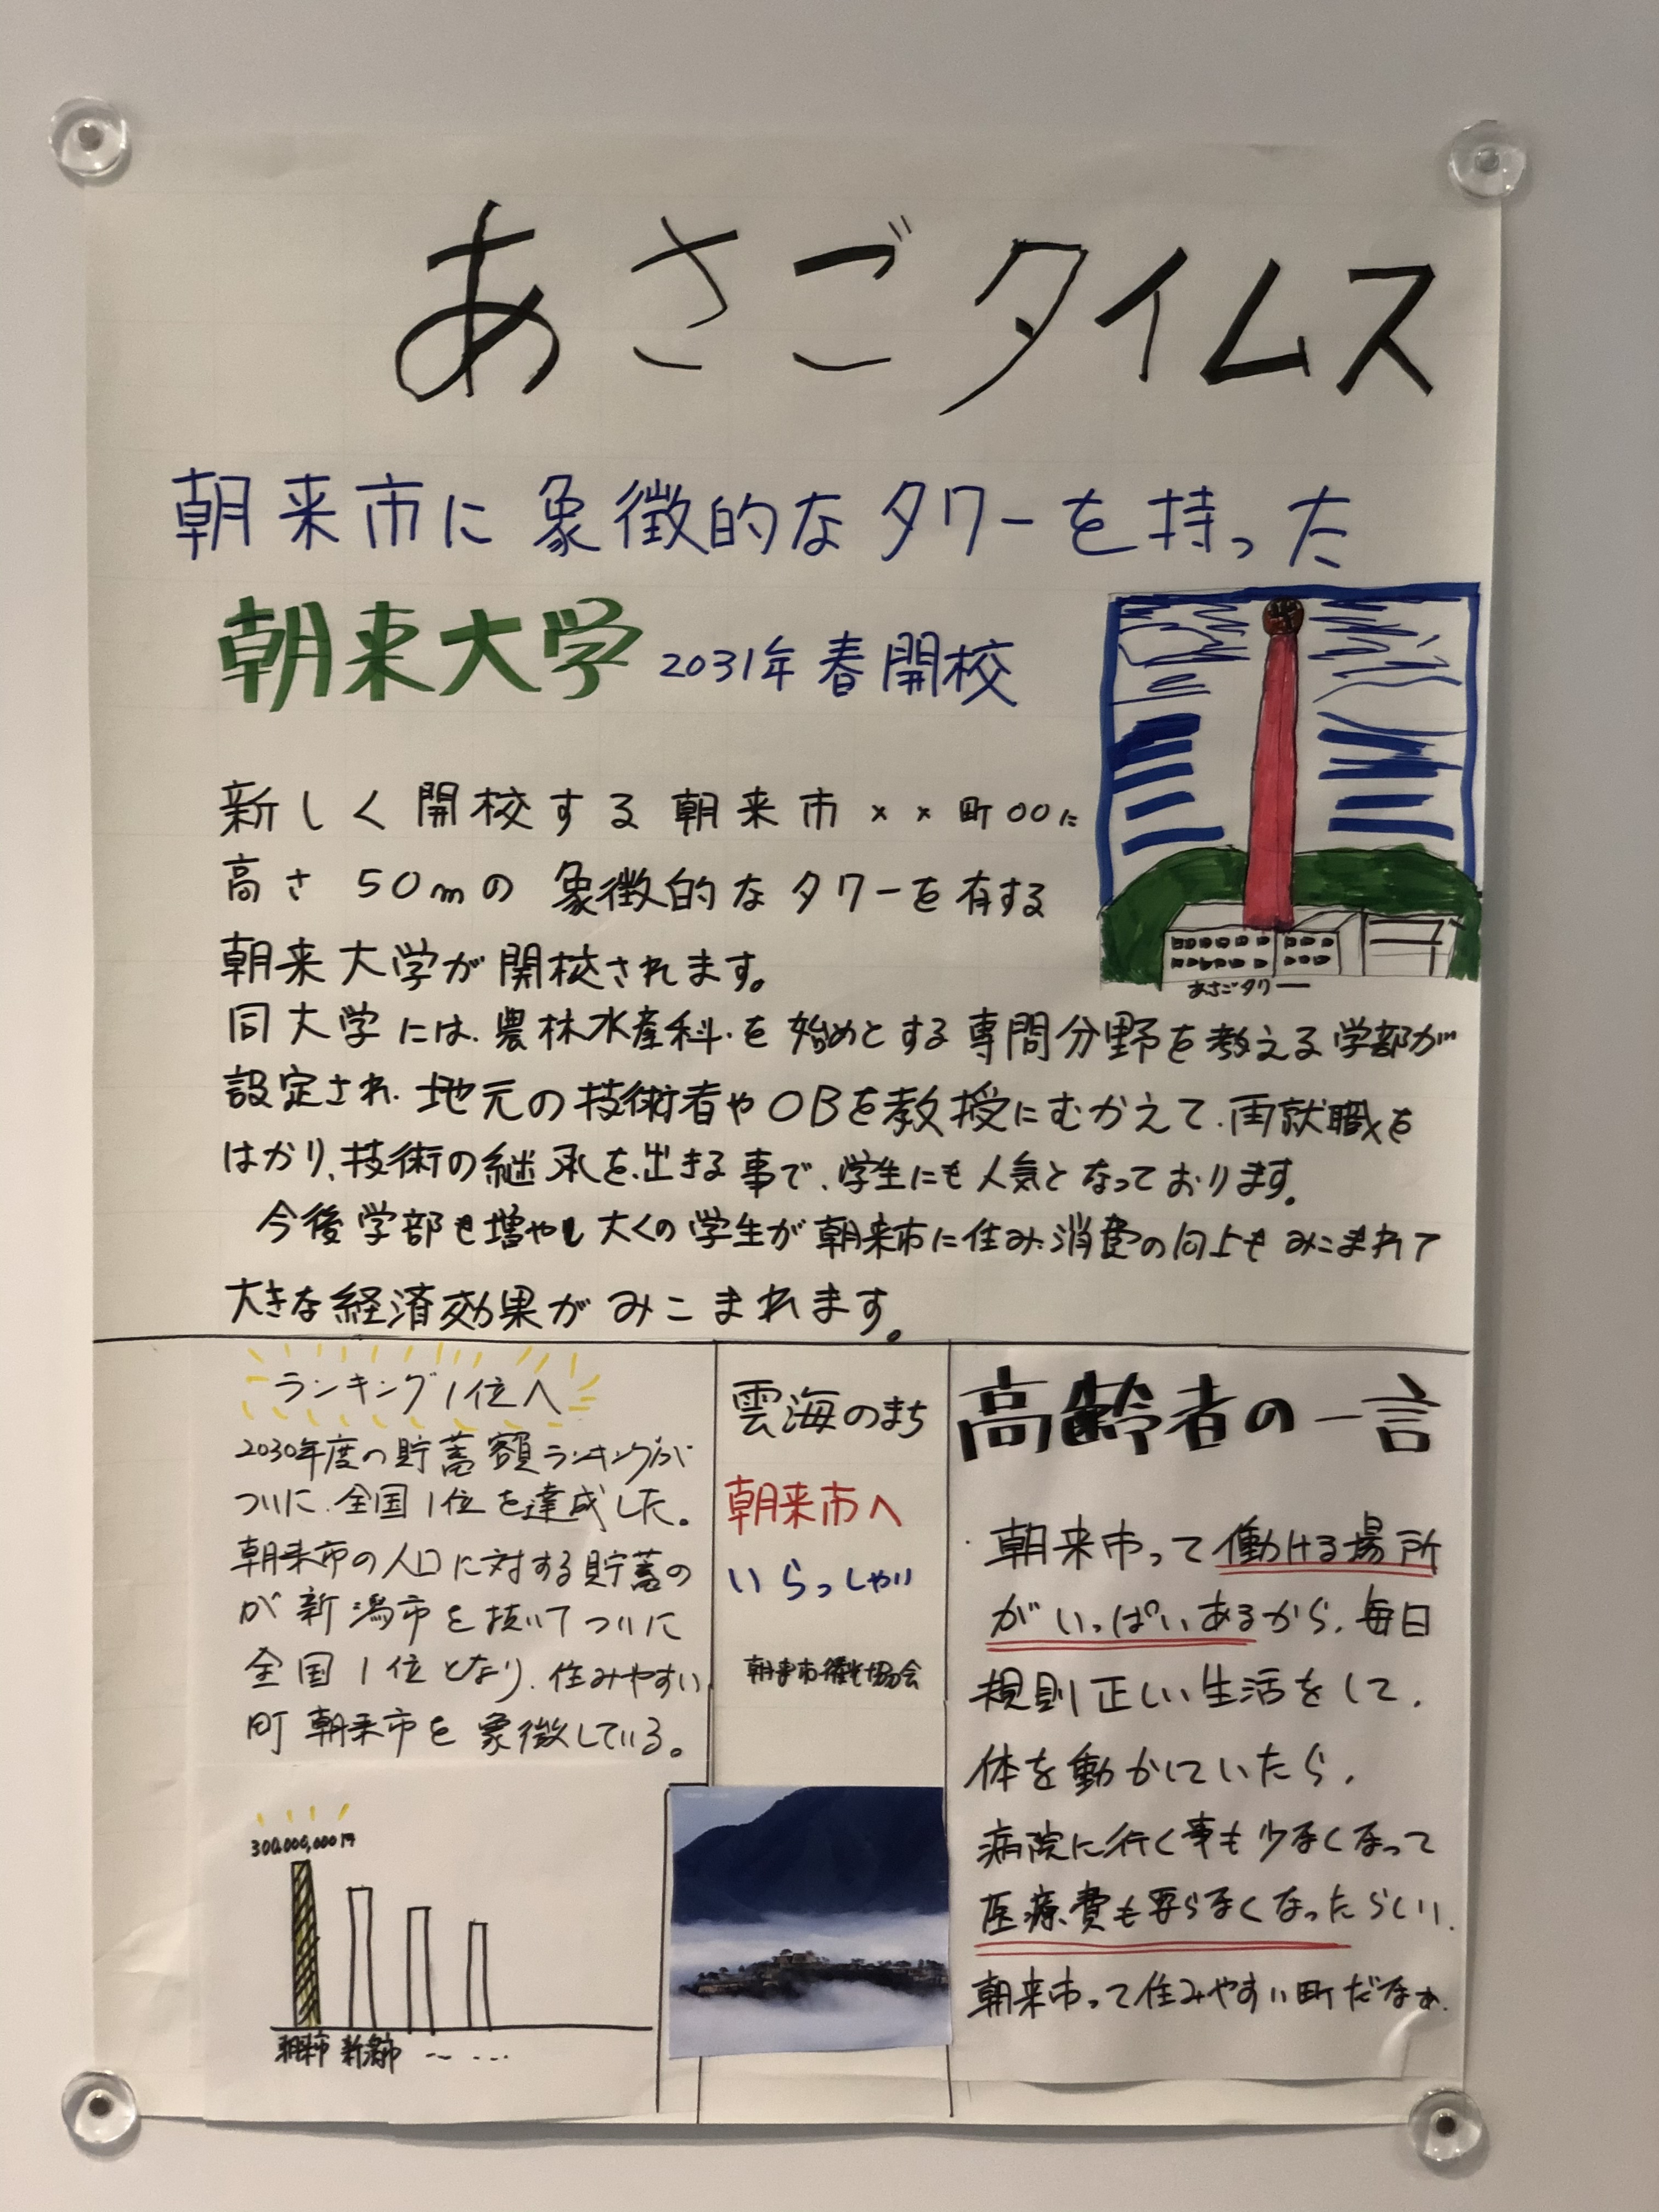 あさごタイムス
朝来市に象徴的なタワーを持った
朝来大学 2031年 春開校
新しく開校する朝来市××町〇〇に
高さ 50mの 象徴的なタワーを有する
朝来大学が開校されます。
あさごタワー
同大学には、農林水産科を始めとする専門分野を教える学部が
設定され、地元の技術者やOBを教授にむかえて、再就職を
はかり、技術の継承を出きる事で、学生にも人気となっております。
今後学部も増やし大くの学生が朝来市に住み消費の向上もみこまれて
大きな経済効果がみこまれます。
ランキング1位へ
2030年度の貯蓄額ランキングが
ついに全国1位を達成した。
朝来市の人口に対する貯蓄の
が新潟市を抜いてついに
全国1位となり、住みやすい
町朝来市を象徴している。
300,000,000円
朝来市 新潟市 ~ ...
雲海のまち
朝来市へ
いらっしゃい
朝来市観光協会
高齢者の一言
朝来市って働ける場所
がいっぱいあるから、毎日
規則正しい生活をして、
体を動かしていたら、
病院に行く事も少なくなって
医療費も要らなくなったらしい。
朝来市って住みやすい町だなぁ。